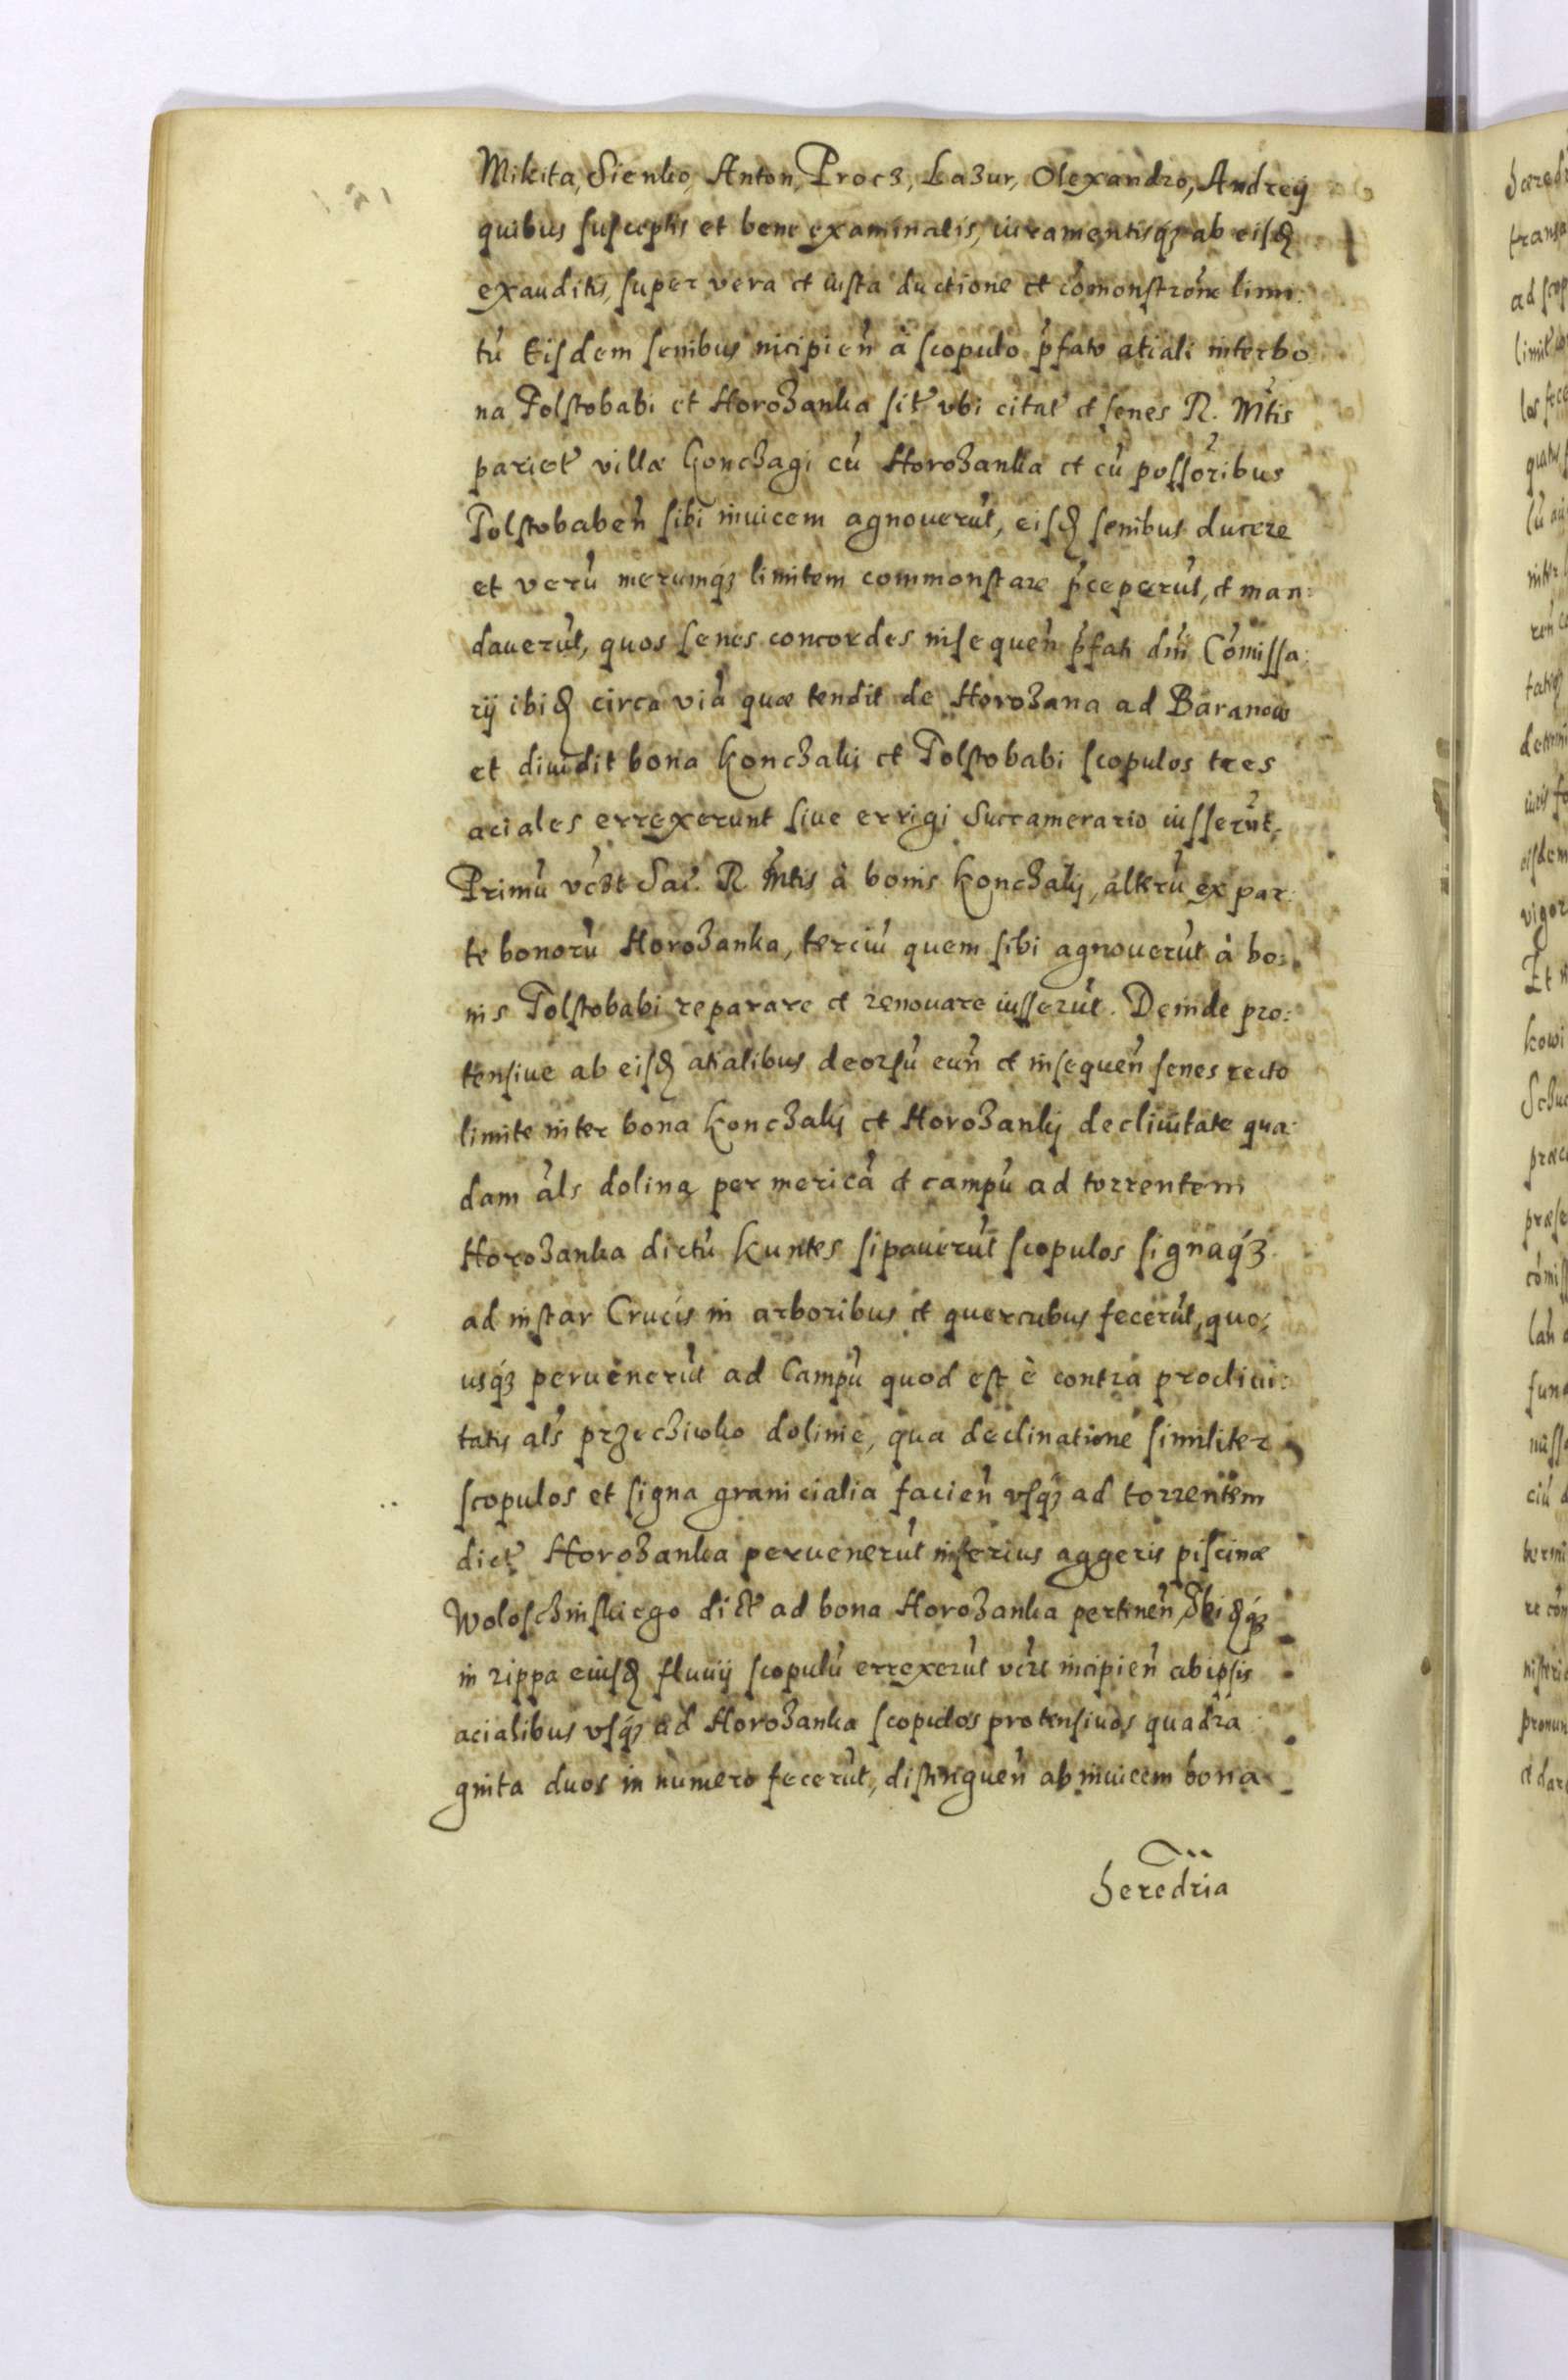 Mikita, Sienko, Anton, Procz, Lazur, Olexandro, Andrey
quibus susceptis et bene examinatis, iuramentisq́ꝫ ab eisꝺ
exauditis, super vera et iusta ductione et cómonstróne limi:
tú Eisdem senibus incipień à scopulo ṕfato aciali inter bo
na Tolstobabi et Horozanka sit́ vbi citat́ et senes R. Mt́is
pariet́ villæ Konczagi cú Horozanka et cú possóribus
Tolstobabeń sibi inuicem agnouerút, eisꝺ senibus ducere
et verú merumq́ꝫ limitem commonstare ṕceperút, et man:
dauerút, quos senes concordes insequeń ṕfati dńi Cómissa:
rij ibiꝺ circa viá quæ tendit de Horozana ad Baranow
et diuidit bona Konczaki et Tolstobabi scopulos tres
aciales errexerunt siue errigi Succamerario iusserút,
Primú vczt Sać. R Mt́is à bonis Konczakj, alterú ex par
te bonorú Horozanka, terciú quem sibi agnouerút à bo:
nis Tolstobabi reparare et renouare iusserút. Deinde pro:
tensiue ab eisꝺ acialibus deorsú euń et insequeń senes recto
limite inter bona Konczakj et Horozankj decliuitate qua
dam áls dolina per mericá et campú ad torrentem
Horozanka dictú Kuntes sipauerút scopulos signaq́ꝫ
ad instar Crucis in arboribus et quercubus fecerút, quo:
usq́ꝫ peruenerút ad Campú quod est è contra procliui:
tatis aĺs przeciwko dolinie, qua declinatione similiter
scopulos et signa granicialia facień vsq́ꝫ ad torrentem
dict́ Horozanka peruenerút inferius aggeris piscinæ
Woloschinskiego dict́ ad bona Horozanka pertineń, Ibiꝺq́ꝫ
in rippa eiusꝺ fluuij scopulú errexerút vczt incipień ab ipsis
acialibus vsq́ꝫ ad Horozanka scopulos protensiuos quadra
ginta duos in numero fecerút, distingueń ab inuicem bona
heredria